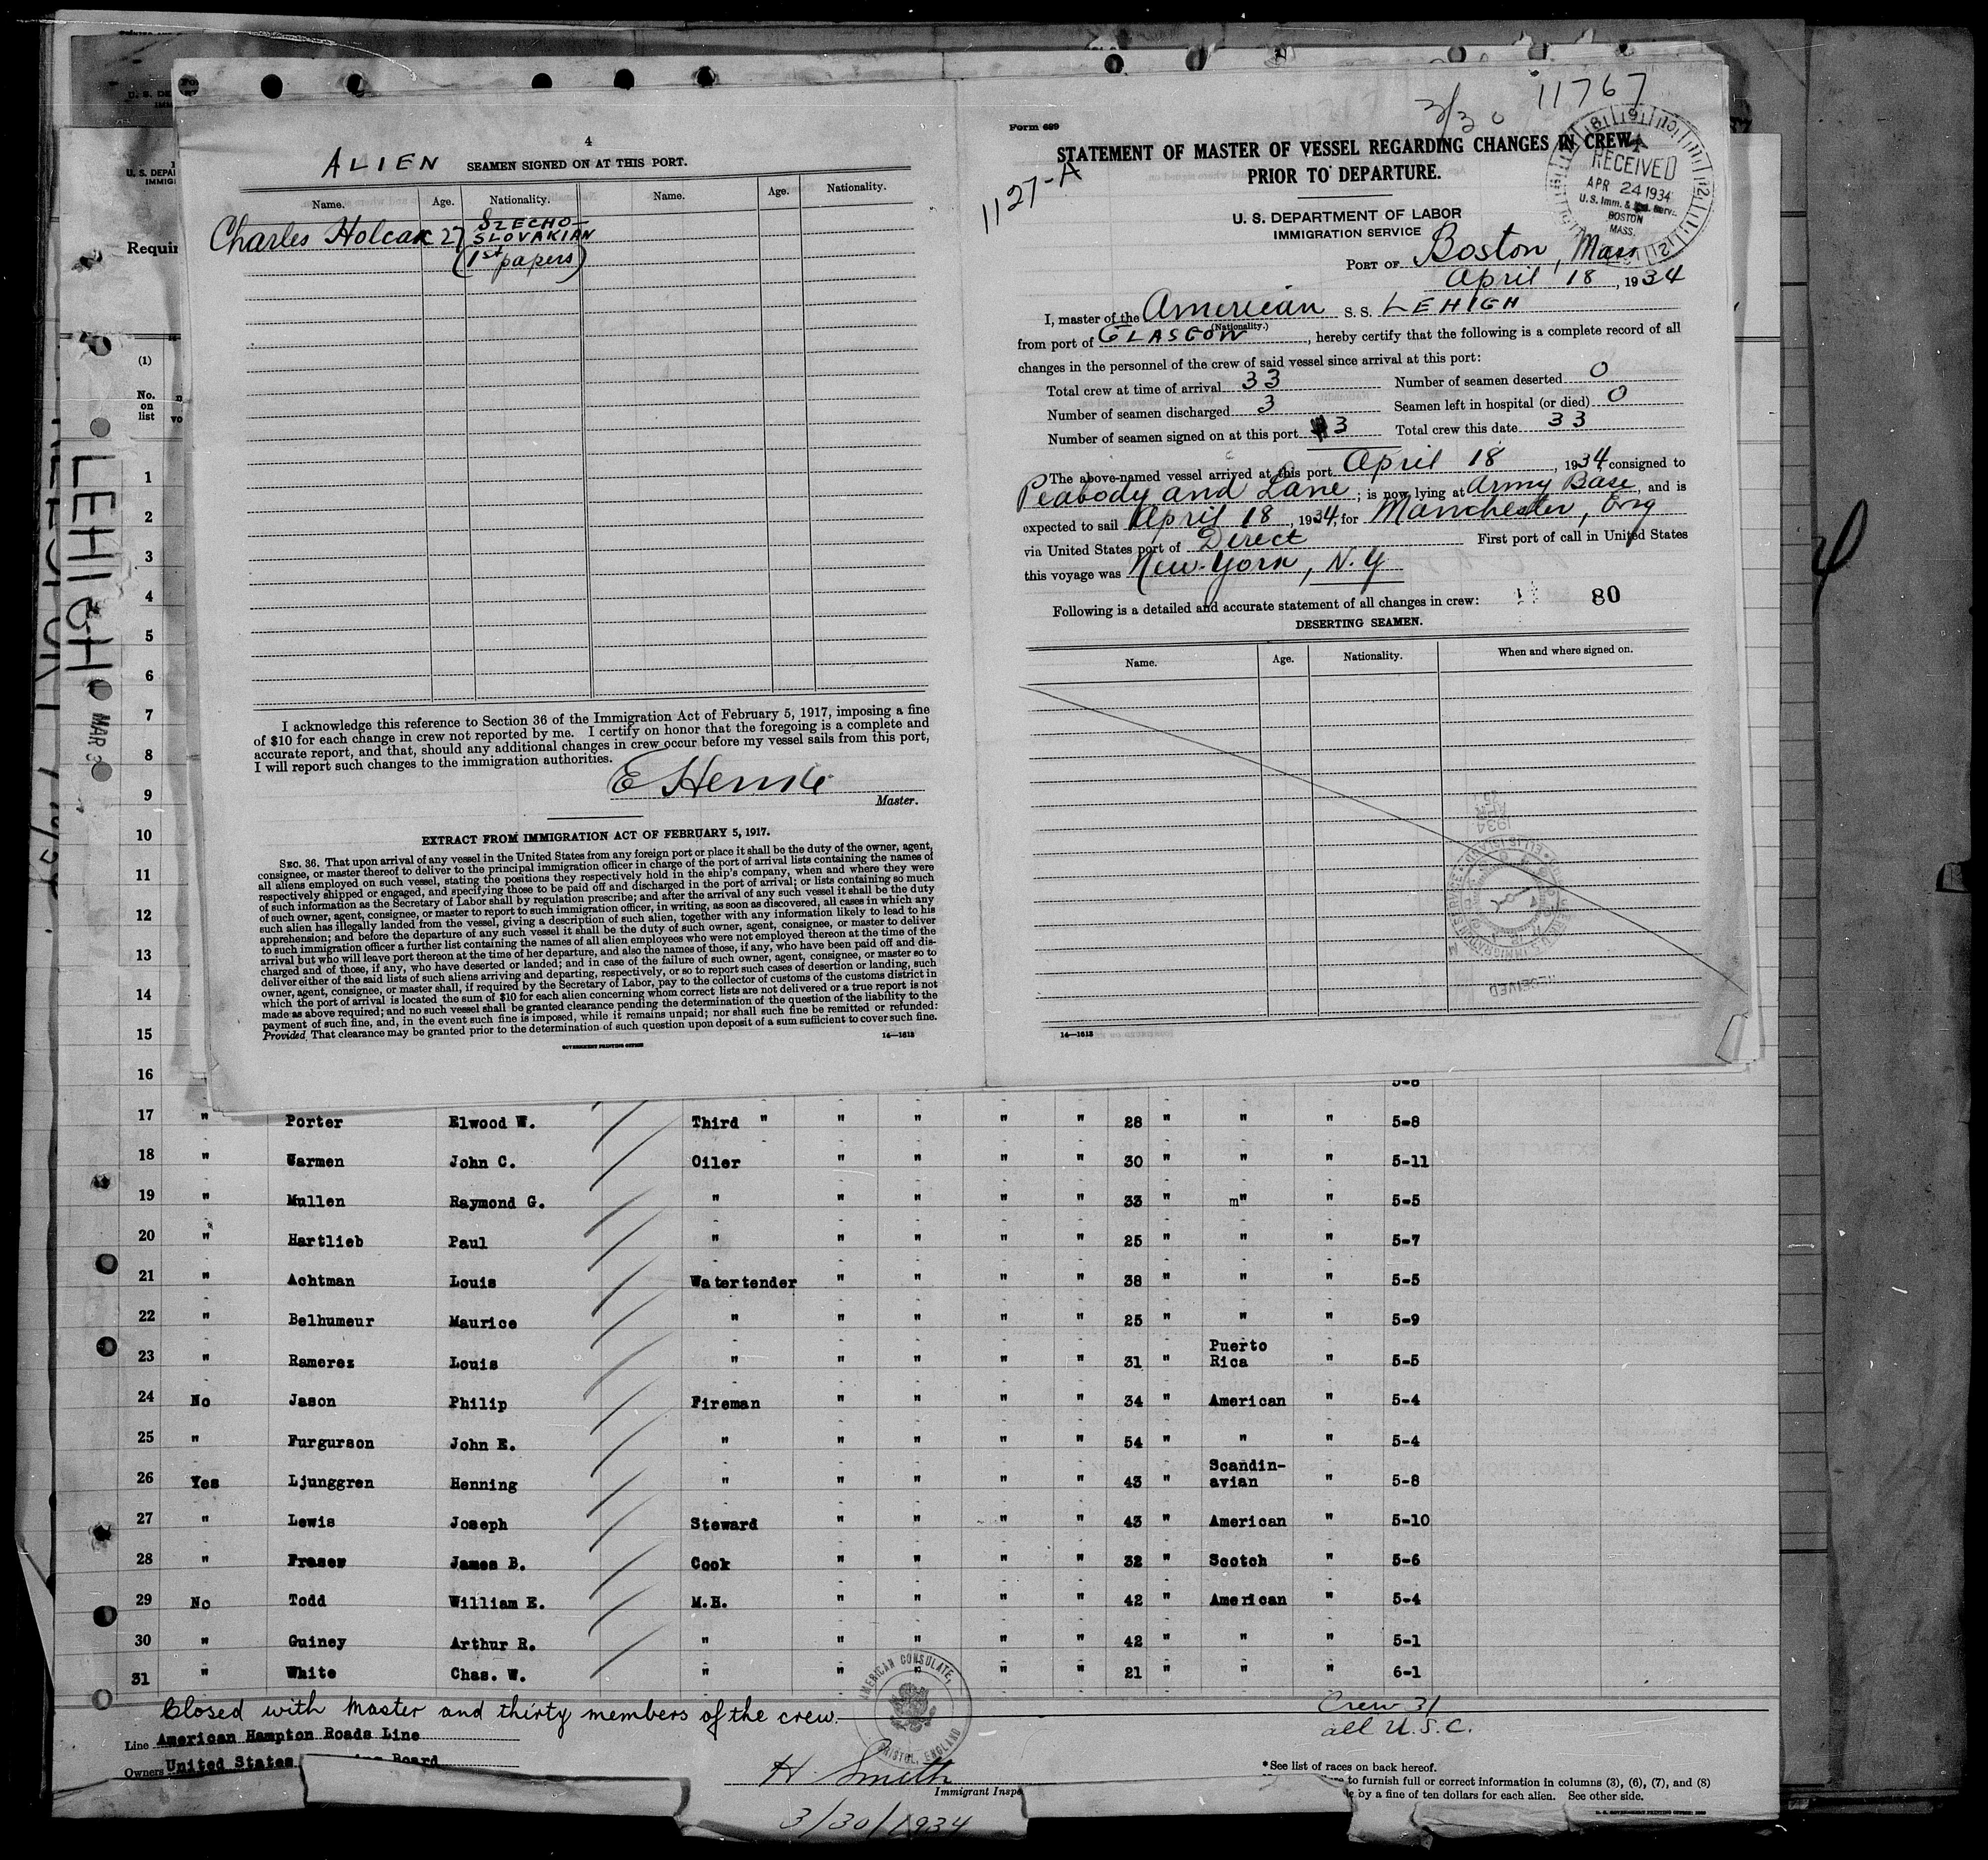 4
ALIEN SEAMEN SIGNED ON AT THIS PORT.
Name. Age. Nationality. Name. Age. Nationality.
Charles Holcak 27 SZECHO-
SLOVAKIAN
(1st papers)
I acknowledge this reference to Section 36 of the Immigration Act of February 5, 1917, imposing a fine
of $10 for each change in crew not reported by me. I certify on honor that the foregoing is a complete and
accurate report, and that, should any additional changes in crew occur before my vessel sails from this port,
I will report such changes to the immigration authorities.
Master.
EXTRACT FROM IMMIGRATION ACT OF FEBRUARY 5, 1917.
SEC. 36. That upon arrival of any vessel in the United States from any foreign port or place it shall be the duty of the owner, agent,
consignee, or master thereof to deliver to the principal immigration officer in charge of the port of arrival lists containing the names of
all aliens employed on such vessel, stating the positions they respectively hold in the ship's company, when and where they were
respectively shipped or engaged, and specifying those to be paid off and discharged in the port of arrival; or lists containing so much
of such information as the Secretary of Labor shall by regulation prescribe; and after the arrival of any such vessel it shall be the duty
of such owner, agent, consignee, or master to report to such immigration officer, in writing, as soon as discovered, all cases in which any
such alien has illegally landed from the vessel, giving a description of such alien, together with any information likely to lead to his
apprehension; and before the departure of any such vessel it shall be the duty of such owner, agent, consignee, or master to deliver
to such immigration officer a further list containing the names of all alien employees who were not employed thereon at the time of the
arrival but who will leave port thereon at the time of her departure, and also the names of those, if any, who have been paid off and dis-
charged and of those, if any, who have deserted or landed; and in case of the failure of such owner, agent, consignee, or master so to
deliver either of the said lists of such aliens arriving and departing, respectively, or so to report such cases of desertion or landing, such
owner, agent, consignee, or master shall, if required by the Secretary of Labor, pay to the collector of customs of the customs district in
which the port of arrival is located the sum of $10 for each alien concerning whom correct lists are not delivered or a true report is not
made as above required; and no such vessel shall be granted clearance pending the determination of the question of the liability to the
payment of such fine, and, in the event such fine is imposed, while it remains unpaid; nor shall such fine be remitted or refunded:
Provided, That clearance may be granted prior to the determination of such question upon deposit of a sum sufficient to cover such fine.
GOVERNMENT PRINTING OFFICE 14—1613
3/30 11767
Form 689
STATEMENT OF MASTER OF VESSEL REGARDING CHANGES IN CREW
PRIOR TO DEPARTURE.
1127-A
RECEIVED
APR 24 1934
U.S. Imm. & Serv.
BOSTON
MASS.
U. S. DEPARTMENT OF LABOR
IMMIGRATION SERVICE
PORT OF Boston, Mass
April 18, 1934
I, master of the American S. S. LEHIGH
(Nationality.)
from port of GLASGOW, hereby certify that the following is a complete record of all
changes in the personnel of the crew of said vessel since arrival at this port:
Total crew at time of arrival 33 Number of seamen deserted 0
Number of seamen discharged 3 Seamen left in hospital (or died) 0
Number of seamen signed on at this port 3 Total crew this date 33
The above-named vessel arrived at this port April 18, 1934, consigned to
Peabody and Lane; is now lying at Army Base, and is
expected to sail April 18, 1934, for Manchester, Eng
via United States port of Direct First port of call in United States
this voyage was New York, N.Y
Following is a detailed and accurate statement of all changes in crew: 80
DESERTING SEAMEN.
Name. Age. Nationality. When and where signed on.
14—1613
(1)
No.
on
list
LEHIGH
MAR 3
1
2
3
4
5
6
7
8
9
10
11
12
13
14
15
16 5-8
17 " Porter Elwood W. Third " " " " " 28 " " " 5-8
18 " Warmen John C. Oiler " " " " 30 " " " 5-11
19 " Mullen Raymond G. " " " " " 33 " m" " 5-5
20 " Hartlieb Paul " " " " " 25 " " " 5-7
21 " Achtman Louis Watertender " " " " 38 " " " 5-5
22 " Belhumeur Maurice " " " " " 25 " " " 5-9
23 " Ramerez Louis " " " " " 31 " Puerto Rica " 5-5
24 No Jason Philip Fireman " " " " 34 " American " 5-4
25 " Furgurson John E. " " " " " 54 " " " 5-4
26 Yes Ljunggren Henning " " " " " 43 " Scandin-avian " 5-8
27 " Lewis Joseph Steward " " " " 43 " American " 5-10
28 " Fraser James B. Cook " " " " 32 " Scotch " 5-6
29 No Todd William E. M.H. " " " " 42 " American " 5-4
30 " Guiney Arthur R. " " " " " 42 " " " 5-1
31 " White Chas. W. " " " " " 21 " " " 6-1
Closed with Master and thirty members of the crew. Crew 31
all U.S.C.
AMERICAN CONSULATE, BRISTOL, ENGLAND
Line American Hampton Roads Line
Owners United States Board
H. Smith
Immigrant Inspe
3/30/1934
*See list of races on back hereof.
to furnish full or correct information in columns (3), (6), (7), and (8)
by a fine of ten dollars for each alien. See other side.